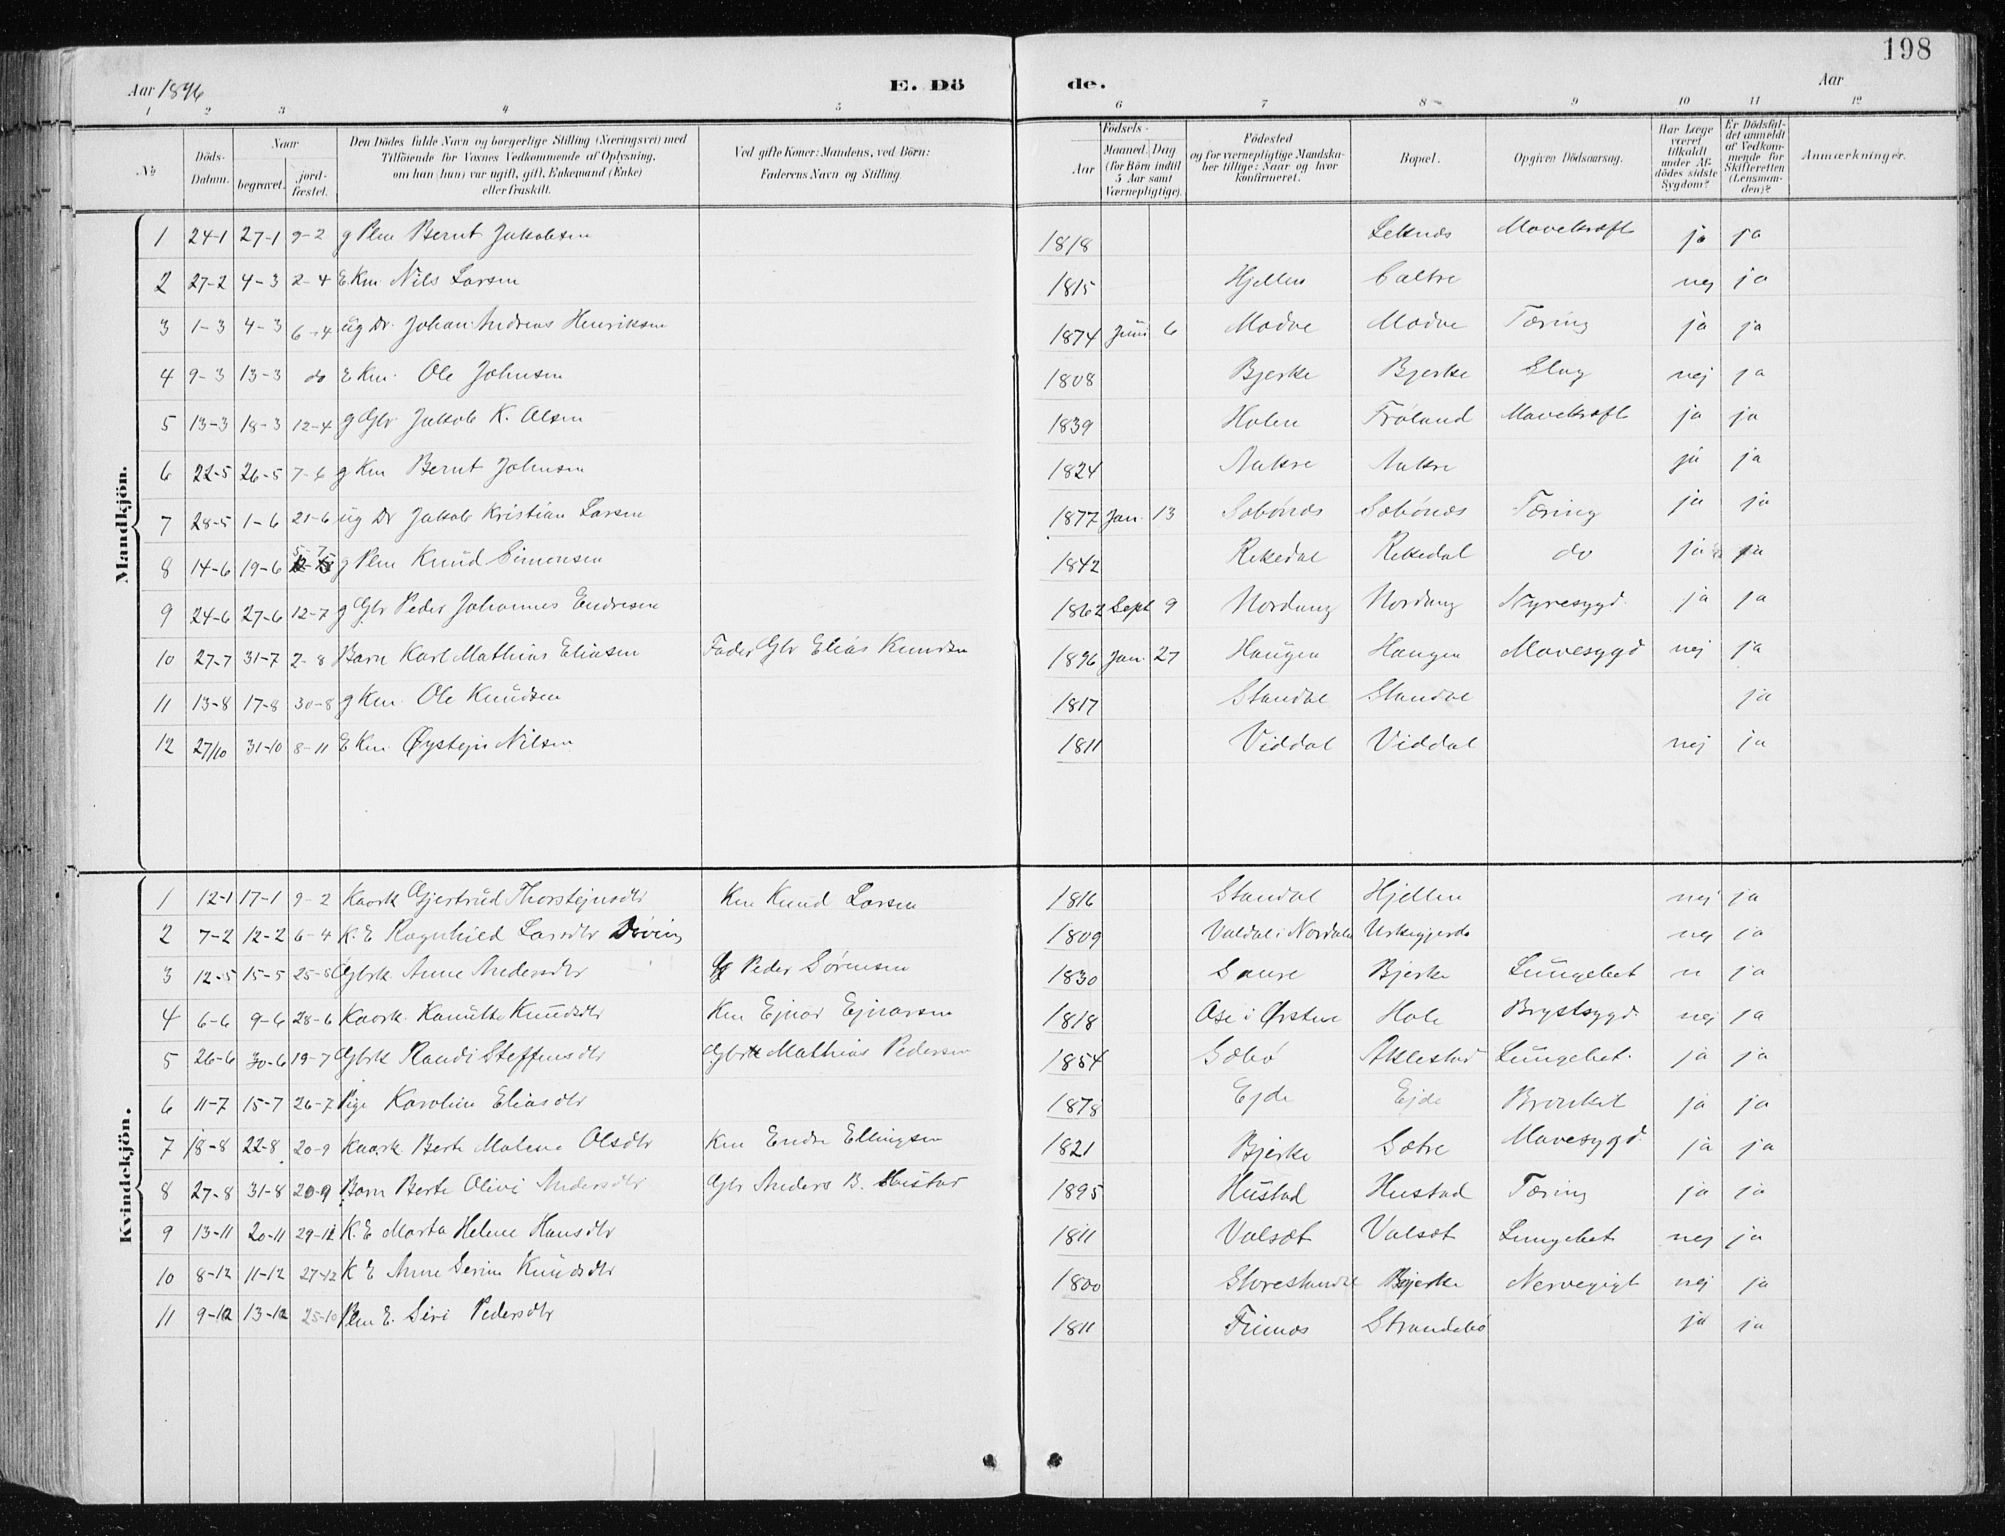 198
Aar 1896 E. Dö de. Aar
1 2 3 4 5 6 7 8 9 10 11 12
No Döds-Datum. Naar begravet. jordfæstet. Den Dödes fulde Navn og borgerlige Stilling (Næringsvei) med Tilföiende for Voxnes Vedkommende af Oplysning, om han (hun) var ugift, gift, Enkemand (Enke) eller fraskilt. Ved gifte Koner: Mandens, ved Börn: Faderens Navn og Stilling. Födsels- Aar Maaned. Dag (for Börn indtil 5 Aar samt Værnepligtige). Födested og for værnepligtige Mandskaber tillige: Naar og hvor konfirmeret. Bopæl. Opgiven Dödsaarsag. Har Læge været tilkaldt under Afdödes sidste Sygdom? Er Dödsfaldet anmeldt af Vedkommende for Skifteretten (Lensmanden)? Anmærkninger.
Mandkjön.
1 24-1 27-1 9-2 g Plm Bernt Jakobsen 1818 Leknes Mavekræft ja ja
2 27-2 4-3 2-4 E. Km. Nils Larsen 1815 Hjellen nej ja
3 1-3 4-3 6-4 ug Dr. Johan Andreas Henriksen 1874 Juni 6 Modve Modve Tæring ja ja
4 9-3 13-3 do E Km. Ole Johnsen 1808 Bjerke Bjerke Slag nej ja
5 13-3 18-3 12-4 g Gbr Jakob K. Olsen 1839 Holen Frøland Mavekræft ja ja
6 22-5 26-5 7-6 g Km Bernt Johnsen 1824 Aakre Aakre ja ja
7 28-5 1-6 21-6 ug Dr Jakob Kristian Larsen 1877 Jan. 13 Sæbønes Sæbønes Tæring ja ja
8 14-6 19-6 5-7 g Plm Knud Simonsen 1842 Rekedal Rekedal do ja ja
9 24-6 27-6 12-7 g Gbr Peder Johannes Endresen 1862 Sept 9 Nordang Nordang Nyresygd. ja ja
10 27-7 31-7 2-8 Barn Karl Mathias Eliasen Fader Gbr Elias Knudsen 1896 Jan. 27 Haugen Haugen Mavesygd nej ja
11 13-8 17-8 30-8 g Km. Ole Knudsen 1817 Standal Standal ja
12 27/10 31-10 8-11 E Km. Øystejn Nilsen 1811 Viddal Viddal nej ja
Kvindekjön.
1 12-1 17-1 9-2 Kaark Gjertrud Thorstejnsdtr Km Knud Larsen 1816 Standal Hjellen nej ja
2 7-2 12-2 6-4 K. E Ragnhild Larsdtr 1809 Valdal i Nordalen Urkegjerde nej ja
3 12-5 15-5 25-5 Gbrk Anne Andersdtr G Peder Sørensen 1830 Saure Bjerke Lungebet n ja
4 6-6 9-6 28-6 Kaark. Kanutte Knudsdtr Km Ejnar Ejnarsen 1818 Ose i Ørsten Hole Brystsygd. nej ja
5 26-6 30-6 19-7 Gbrk Randi Steffensdtr Gbr Mathias Pedersen 1854 Sæbø Aklestad Lungebet. ja ja
6 11-7 15-7 26-7 Pige Karoline Eliasdtr 1878 Ejde Ejde Bronkit ja ja
7 18-8 22-8 20-9 Kaark. Berte Malene Olsdtr Km Endre Ellingsen 1821 Bjerke Sætre Mavesygd. ja ja
8 27-8 31-8 20-9 Barn Berte Olivi Andersdtr Gbr Anders B. Hustad 1895 Hustad Hustad Tæring ja ja
9 13-11 20-11 29-12 K. E Marta Helene Hansdtr 1811 Valsæt Valsæt Lungebet nej ja
10 8-12 11-12 27-12 K E Anne Serine Knudsdtr 1800 Storestandal Bjerke Nervegigt nej ja
11 9-12 13-12 25-10 Plm E. Siri Pedersdtr 1811 Finnes Strandebø ja ja